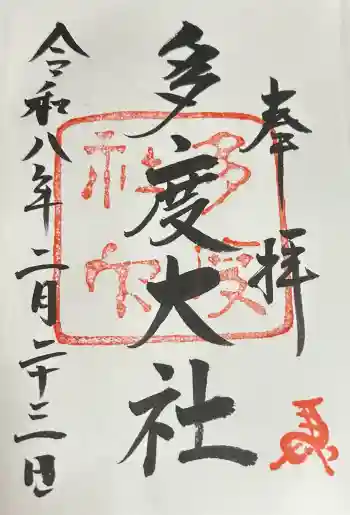 奉拝
多度大社
令和八年二月二十三日